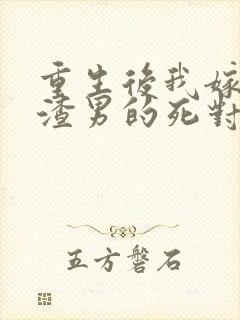 重生後我嫁
渣男的死對
五方磐石